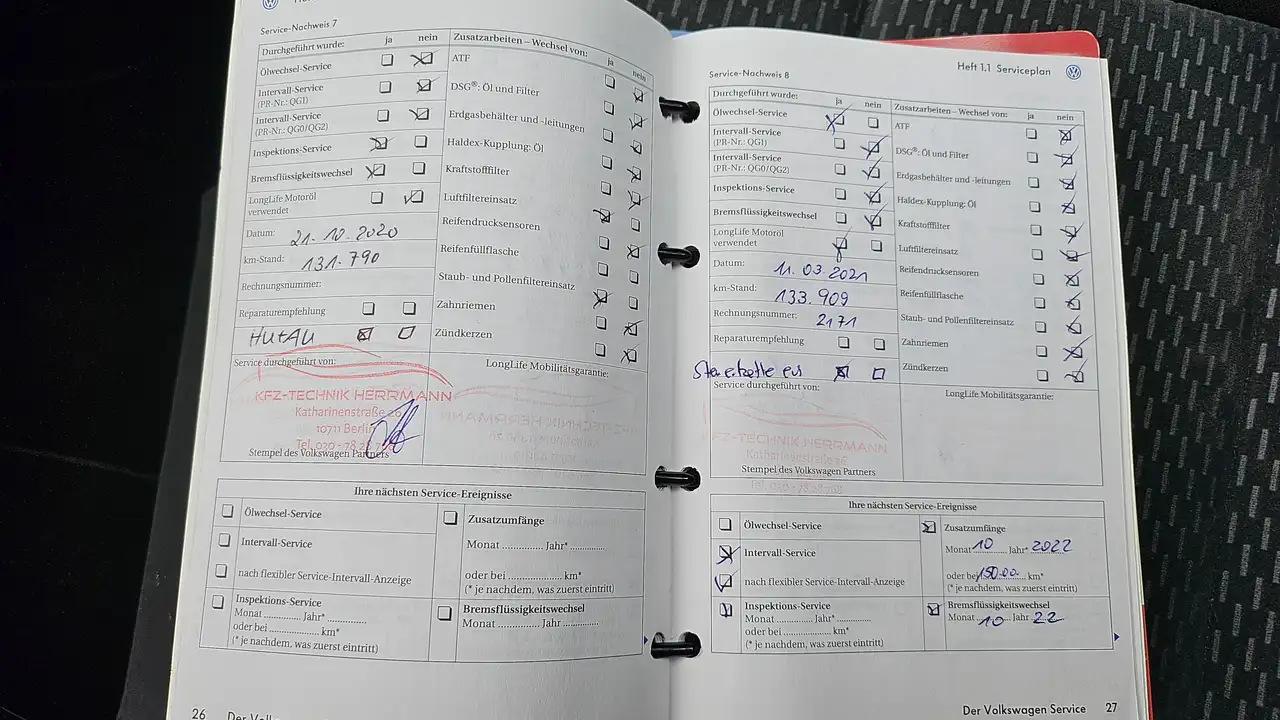 Service-Nachweis 7
Durchgeführt wurde: ja nein
Ölwechsel-Service
Intervall-Service
(PR-Nr.: QG1)
Intervall-Service
(PR-Nr.: QG0/QG2)
Inspektions-Service
Bremsflüssigkeitswechsel
LongLife Motoröl
verwendet
Datum: 21.10.2020
km-Stand: 131.790
Rechnungsnummer:
Reparaturempfehlung
HU+AU
Zusatzarbeiten – Wechsel von: ja nein
ATF
DSG®: Öl und Filter
Erdgasbehälter und -leitungen
Haldex-Kupplung: Öl
Kraftstofffilter
Luftfiltereinsatz
Reifendrucksensoren
Reifenfüllflasche
Staub- und Pollenfiltereinsatz
Zahnriemen
Zündkerzen
Service durchgeführt von:
KFZ-TECHNIK HERRMANN
Katharinenstraße 26
10711 Berlin
Stempel des Volkswagen Partners
LongLife Mobilitätsgarantie:
Ihre nächsten Service-Ereignisse
Ölwechsel-Service
Intervall-Service
nach flexibler Service-Intervall-Anzeige
Inspektions-Service
Monat ............ Jahr* ............
oder bei ............ km*
(* je nachdem, was zuerst eintritt)
Zusatzumfänge
Monat ............ Jahr* ............
oder bei ............ km*
(* je nachdem, was zuerst eintritt)
Bremsflüssigkeitswechsel
Monat ............ Jahr ............
26
Heft 1.1 Serviceplan
Service-Nachweis 8
Durchgeführt wurde: ja nein
Ölwechsel-Service
Intervall-Service
(PR-Nr.: QG1)
Intervall-Service
(PR-Nr.: QG0/QG2)
Inspektions-Service
Bremsflüssigkeitswechsel
LongLife Motoröl
verwendet
Datum: 11.03.2021
km-Stand: 133.909
Rechnungsnummer: 2171
Reparaturempfehlung
Zusatzarbeiten – Wechsel von: ja nein
ATF
DSG®: Öl und Filter
Erdgasbehälter und -leitungen
Haldex-Kupplung: Öl
Kraftstofffilter
Luftfiltereinsatz
Reifendrucksensoren
Reifenfüllflasche
Staub- und Pollenfiltereinsatz
Zahnriemen
Zündkerzen
Service durchgeführt von:
KFZ-TECHNIK HERRMANN
Katharinenstraße 26
Stempel des Volkswagen Partners
LongLife Mobilitätsgarantie:
Ihre nächsten Service-Ereignisse
Ölwechsel-Service
Intervall-Service
nach flexibler Service-Intervall-Anzeige
Inspektions-Service
Monat ............ Jahr* ............
oder bei ............ km*
(* je nachdem, was zuerst eintritt)
Zusatzumfänge
Monat 10 Jahr* 2022
oder bei km*
(* je nachdem, was zuerst eintritt)
Bremsflüssigkeitswechsel
Monat 10 Jahr 22
Der Volkswagen Service 27